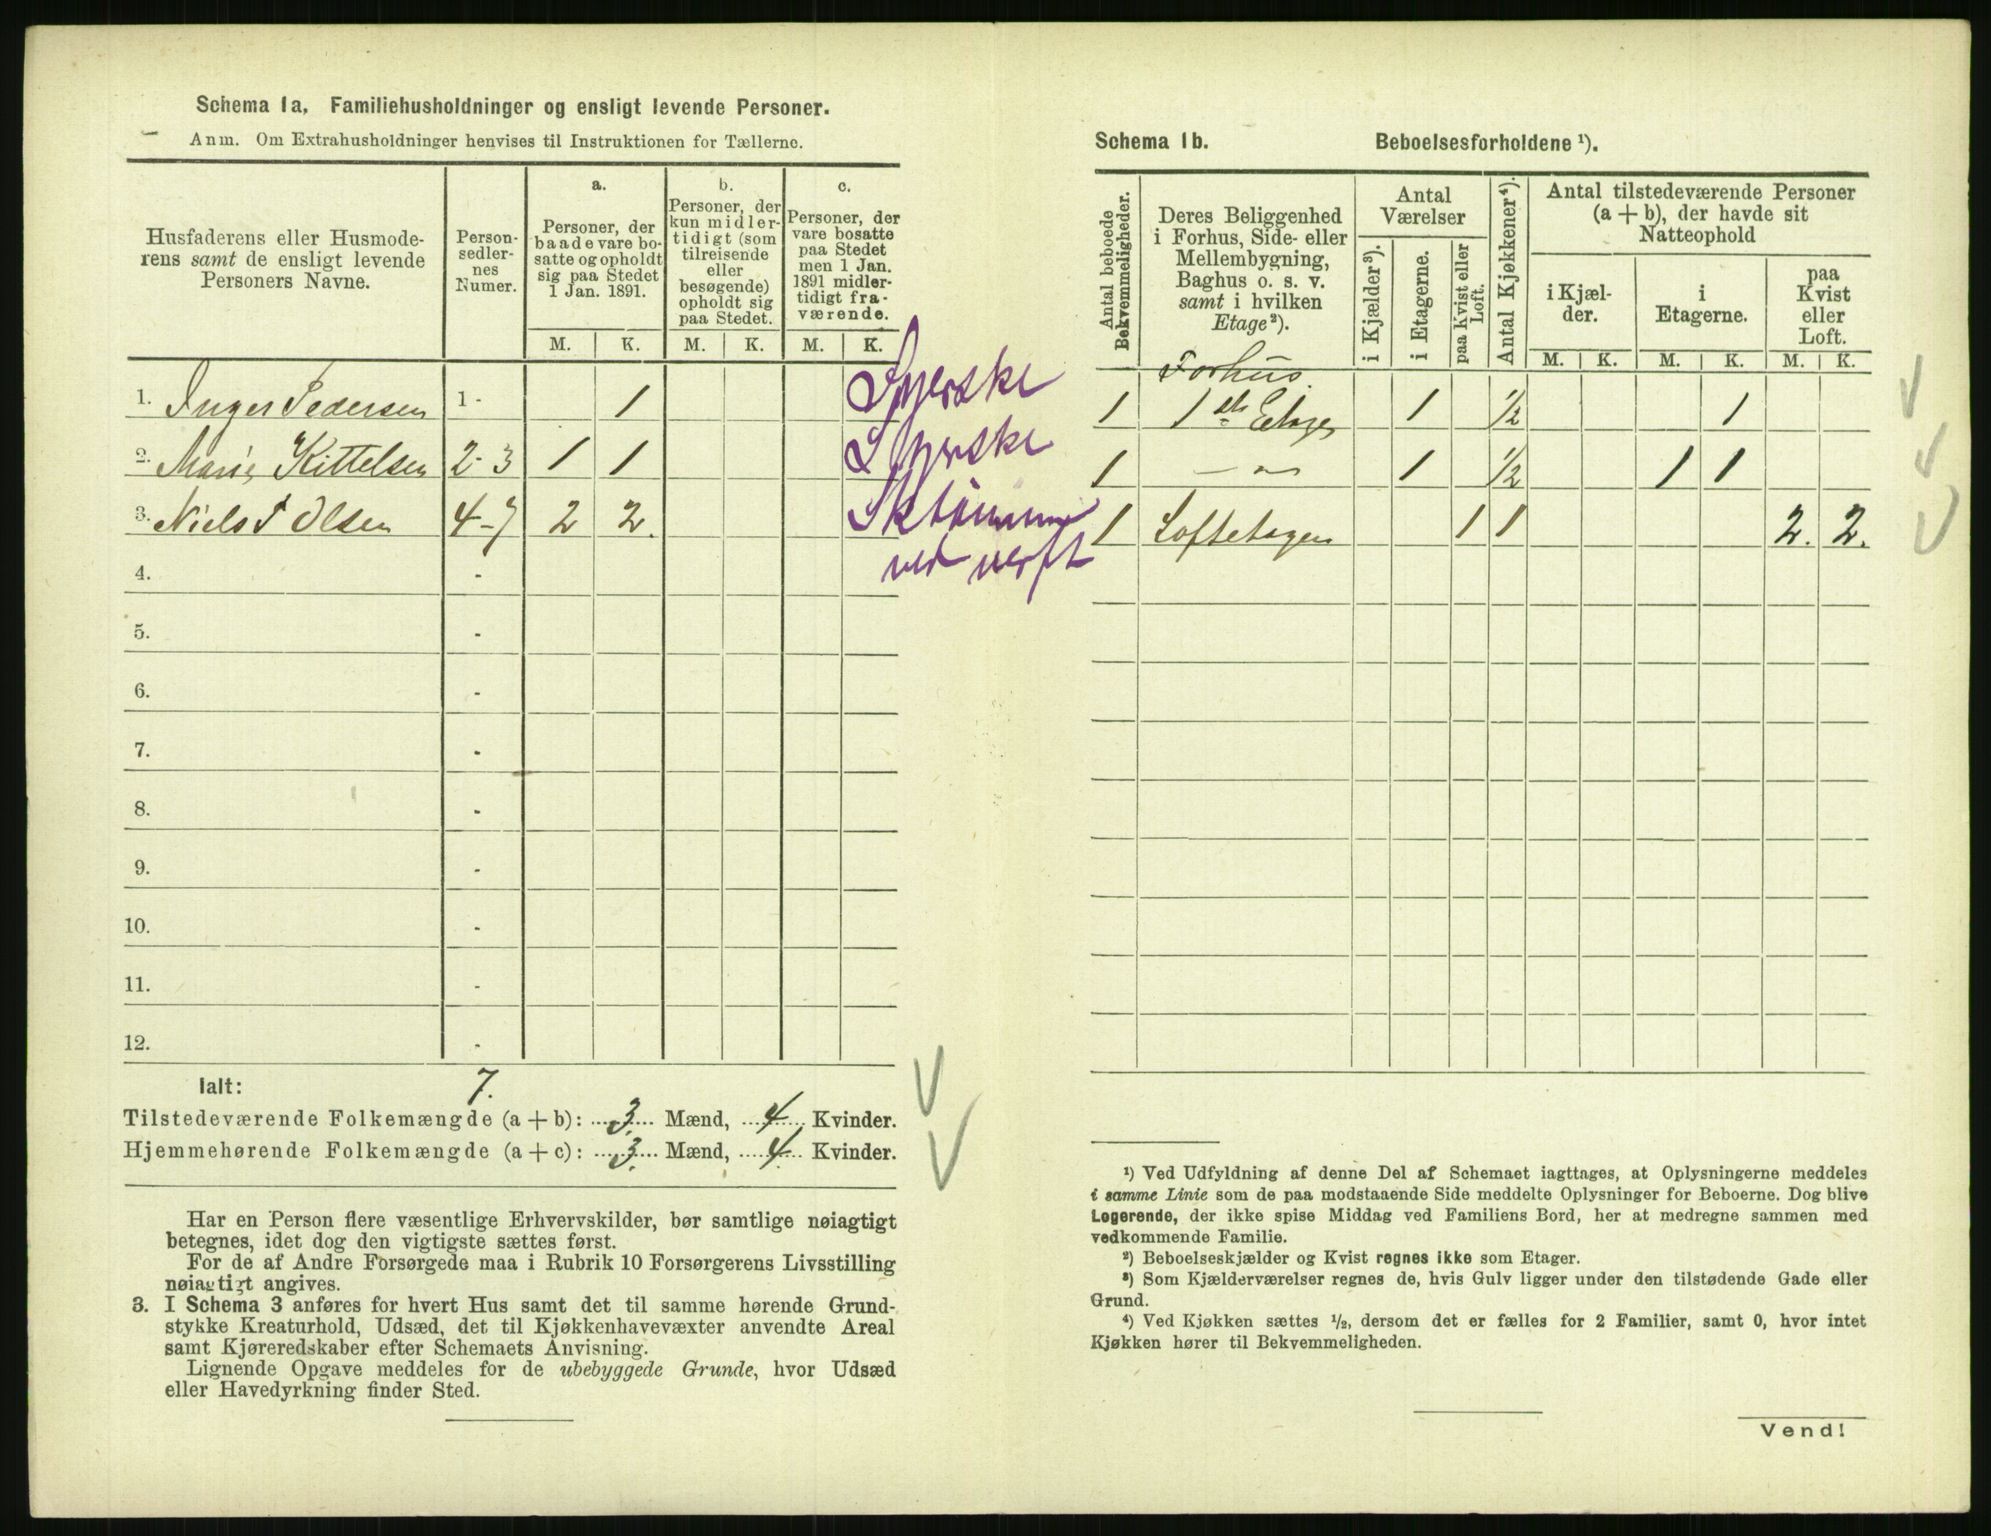 Schema 1a. Familiehusholdninger og ensligt levende Personer.
Anm. Om Extrahusholdninger henvises til Instruktionen for Tællerne.
Husfaderens eller Husmode-
rens samt de ensligt levende
Personers Navne.
Person-
sedler-
nes
Numer.
a.
Personer, der
baade vare bo-
satte og opholdt
sig paa Stedet
1 Jan. 1891.
b.
Personer, der
kun midler-
tidigt (som
tilreisende
eller
besøgende)
opholdt sig
paa Stedet.
c.
Personer, der
vare bosatte
paa Stedet
men 1 Jan.
1891 midler-
tidigt fra-
værende.
M. K. M. K. M. K.
1. Inger Pedersen 1 - 1 Syerske
2. Marie Kittelsen 2-3 1 1 Syerske
3. Niels T Olsen 4-7 2 2.
ved verft
4. -
5. -
6. -
7. -
8. -
9. -
10. -
11. -
12. -
Ialt: 7.
Tilstedeværende Folkemængde (a + b): 3 Mænd, 4 Kvinder.
Hjemmehørende Folkemængde (a + c): 3 Mænd, 4 Kvinder.
Har en Person flere væsentlige Erhvervskilder, bør samtlige nøiagtigt
betegnes, idet dog den vigtigste sættes først.
For de af Andre Forsørgede maa i Rubrik 10 Forsørgerens Livsstilling
nøiagtigt angives.
3. I Schema 3 anføres for hvert Hus samt det til samme hørende Grund-
stykke Kreaturhold, Udsæd, det til Kjøkkenhavevæxter anvendte Areal
samt Kjøreredskaber efter Schemaets Anvisning.
Lignende Opgave meddeles for de ubebyggede Grunde, hvor Udsæd
eller Havedyrkning finder Sted.
Schema 1b. Beboelsesforholdene ¹).
Antal beboede
Bekvemmeligheder.
Deres Beliggenhed
i Forhus, Side- eller
Mellembygning,
Baghus o. s. v.
samt i hvilken
Etage²).
Antal
Værelser
i Kjælder³).
i Etagerne.
paa Kvist eller
Loft.
Antal Kjøkkener⁴).
Antal tilstedeværende Personer
(a + b), der havde sit
Natteophold
i Kjæl-
der.
i
Etagerne.
paa
Kvist
eller
Loft.
M. K. M. K. M. K.
Forhus
1 1ste Etage 1 ½ 1
1 — " — 1 ½ 1 1
1 Loftetagen 1 1 2. 2.
¹) Ved Udfyldning af denne Del af Schemaet iagttages, at Oplysningerne meddeles
i samme Linie som de paa modstaaende Side meddelte Oplysninger for Beboerne. Dog blive
Logerende, der ikke spise Middag ved Familiens Bord, her at medregne sammen med
vedkommende Familie.
²) Beboelseskjælder og Kvist regnes ikke som Etager.
³) Som Kjælderværelser regnes de, hvis Gulv ligger under den tilstødende Gade eller
Grund.
⁴) Ved Kjøkken sættes ½, dersom det er fælles for 2 Familier, samt 0, hvor intet
Kjøkken hører til Bekvemmeligheden.
Vend!